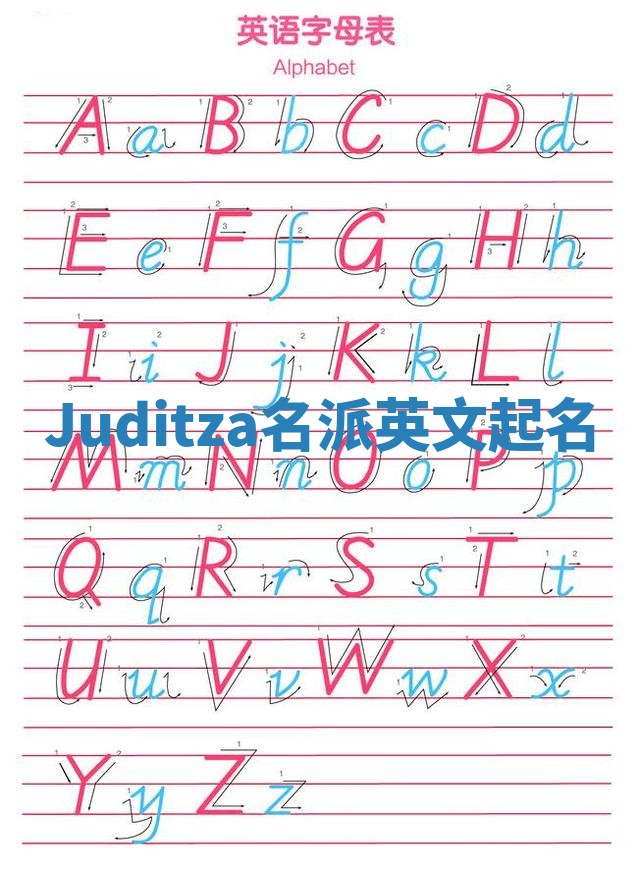 英语字母表
Alphabet
A a B b C c D d
E e F f G g H h
I i J j K k L l
Juditza名派英文起名
M m N n O o P p
Q q R r S s T t
U u V v W w X x
Y y Z z